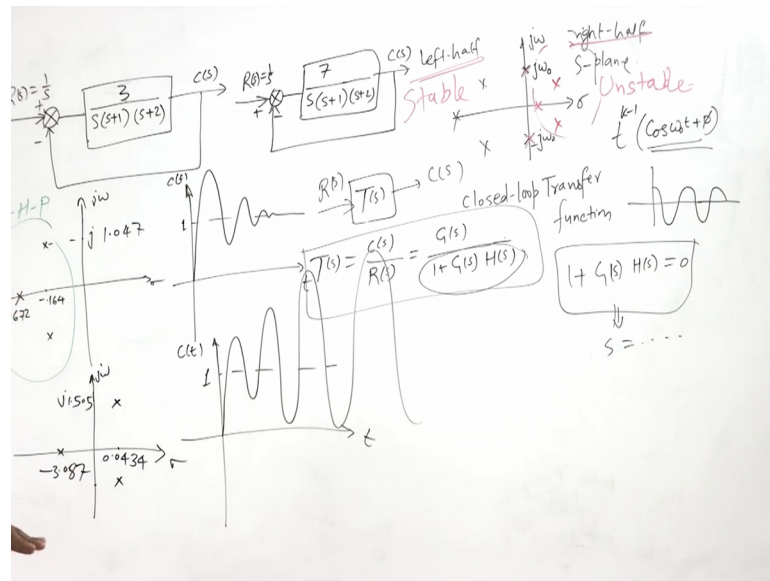 R(s)=1/s
+
-
3
S(S+1)(S+2)
C(S)
R(S)=1/s
+
-
7
S(S+1)(S+2)
C(S)
left-half
Stable
jω
jω₀
-jω₀
σ
right-half
S-plane
Unstable
t^(k-1) (Cosω₀t+φ)
-H-P
jω
j 1.047
σ
-.164
672
C(t)
1
t
R(S)
T(s)
C(S)
closed-loop Transfer
function
T(S) = C(S)/R(S) = G(S)/(1+G(S) H(S))
1+ G(S) H(S) = 0
⇓
S = ....
C(t)
1
t
jω
j1.505
-3.087
0.0434
σ